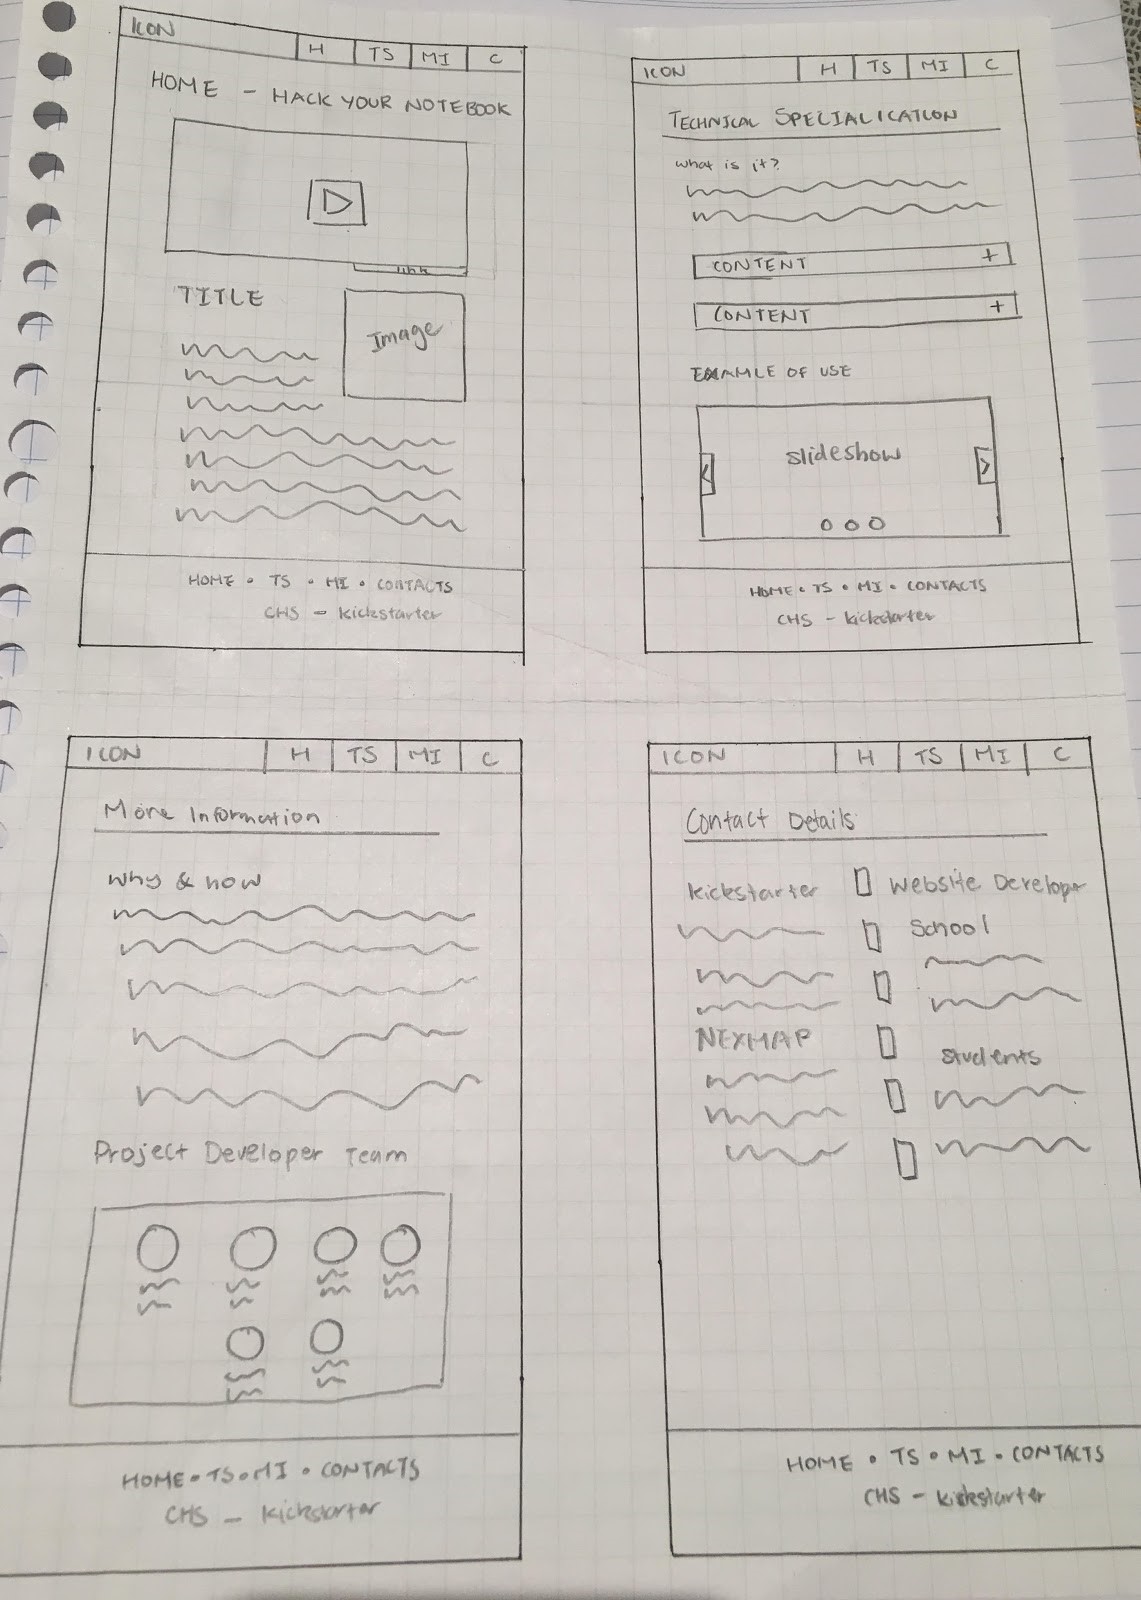 ICON H TS MI C
HOME - HACK YOUR NOTEBOOK
link
TITLE
Image
HOME • TS • MI • CONTACTS
CHS - kickstarter
ICON H TS MI C
TECHNICAL SPECIALICATION
what is it?
CONTENT +
CONTENT +
EXAMLE OF USE
< slideshow >
HOME • TS • MI • CONTACTS
CHS - kickstarter
ICON H TS MI C
More Information
why & how
Project Developer Team
HOME • TS • MI • CONTACTS
CHS - kickstarter
ICON H TS MI C
Contact Details
kickstarter
NEXMAP
Website Developer
School
students
HOME • TS • MI • CONTACTS
CHS - kickstarter